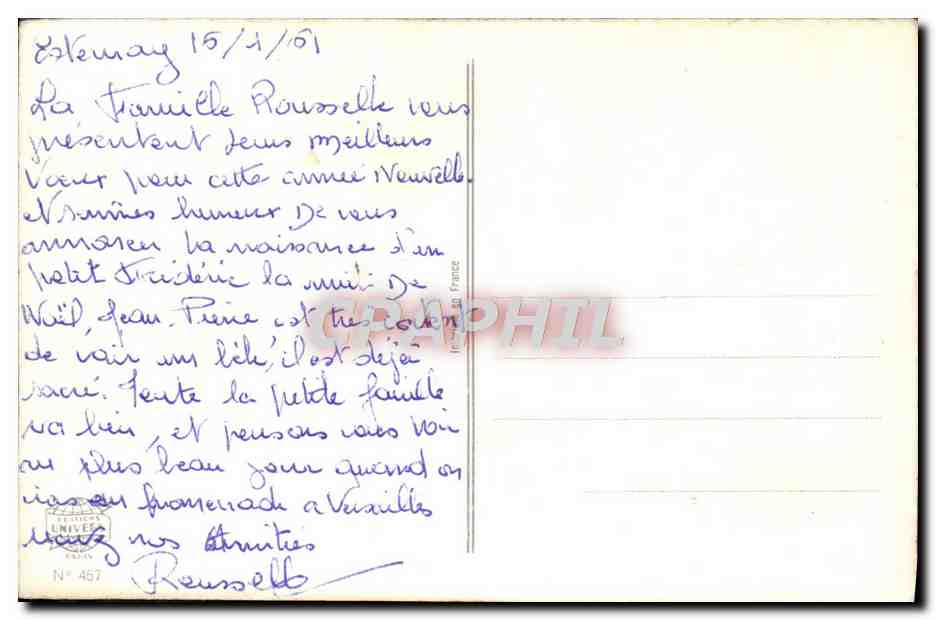 15/1/61
La Famille Rousselle vous
présentent leurs meilleurs
Voeux pour cette année Nouvelle.
et sommes heureux De vous
annoncer la naissance d'un
petit Frédéric la nuit De
Noël, Jean-Pierre est très content
de voir un bébé, il est déjà
sacré. Toute la petite famille
va bien, et pensons vous voir
au plus beau jour quand on
ira en promenade a Versailles
nos Amitiés
Rousselle
EDITIONS
UNIVERS
PARIS
N° 457
en France
CPAPHIL